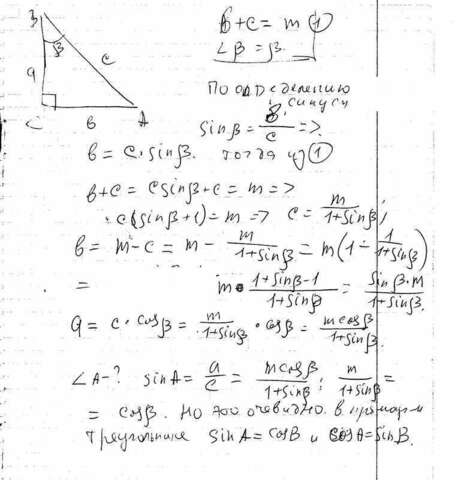 B
β
a c
C b A
b + c = m ①
∠β = β.
По определению
синуса
sinβ = b/c =>
b = c · sinβ. тогда из ①
b + c = c sinβ + c = m =>
c(sinβ + 1) = m => c = m/(1+sinβ);
b = m - c = m - m/(1+sinβ) = m(1 - 1/(1+sinβ))
= m · (1+sinβ-1)/(1+sinβ) = sinβ·m/(1+sinβ).
a = c · cosβ = m/(1+sinβ) · cosβ = m cosβ/(1+sinβ)
∠A-? sinA = a/c = m cosβ/(1+sinβ) : m/(1+sinβ) =
= cosβ. но это очевидно. в прямоуг
треугольнике sinA = cosB и cosA = sinB.